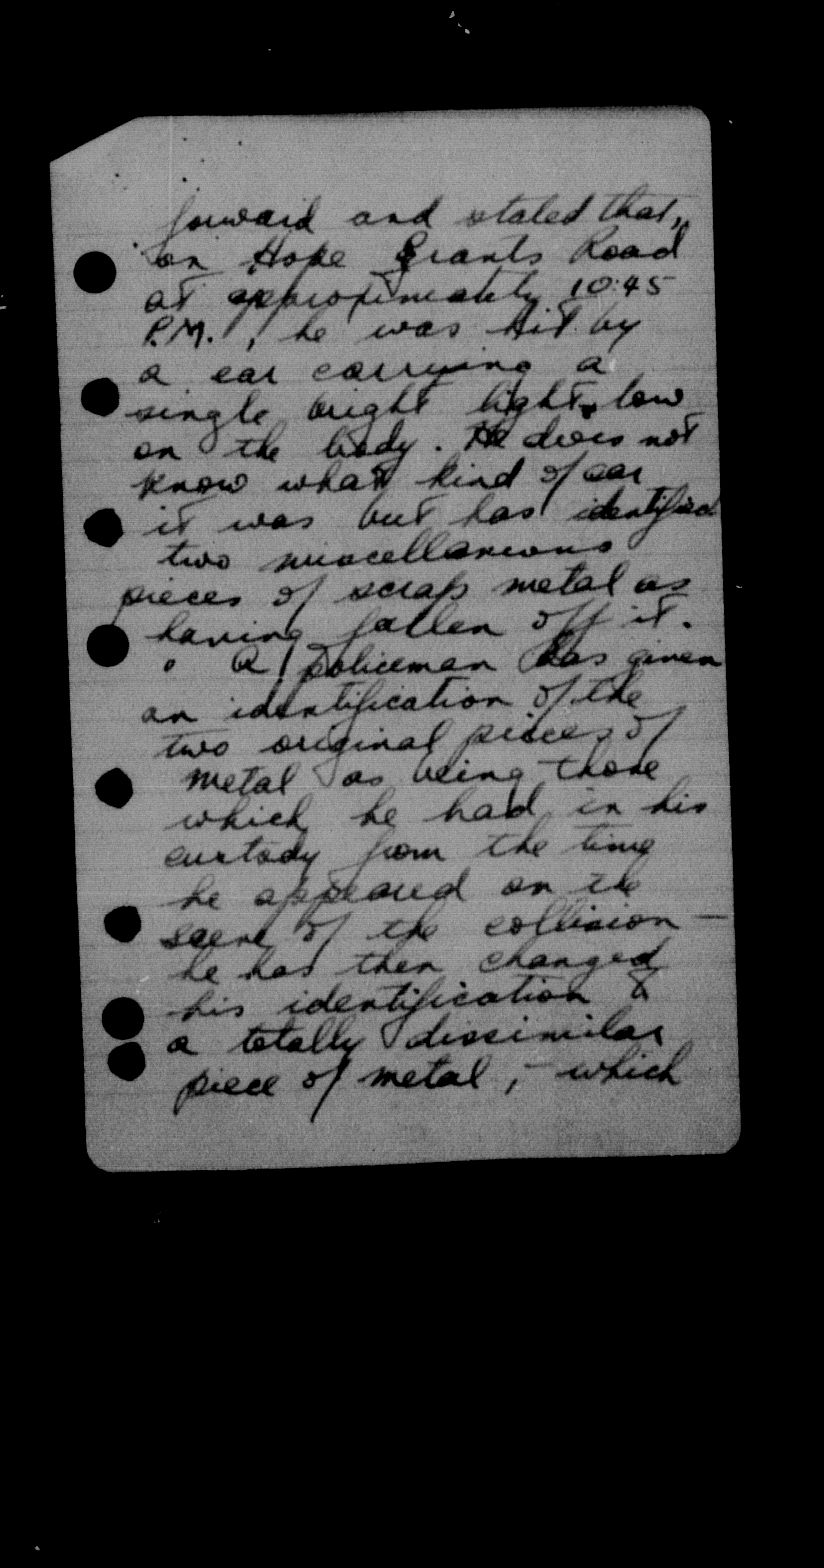 forward and stated that,
on Hope Grants Road
at approximately 10:45
P.M., he was hit by
a car carrying a
single bright light, low
on the body. He does not
know what kind of car
it was but has identified
two miscellaneous
pieces of scrap metal as
having fallen off it.
A policeman has given
an identification of the
two original pieces of
metal as being those
which he had in his
custody from the time
he appeared on the
scene of the collision —
he has then changed
his identification &
a totally dissimilar
piece of metal, - which